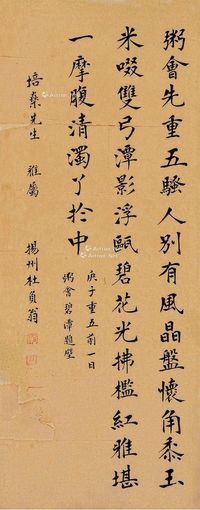 粥會先重五騷人別有風晶盤懷角黍玉
米啜雙弓潭影浮甌碧花光拂檻紅雅堪
一摩腹清濁了於中
庚子重五前一日
粥會碧潭題壁
培桑先生 雅屬
揚州杜負翁